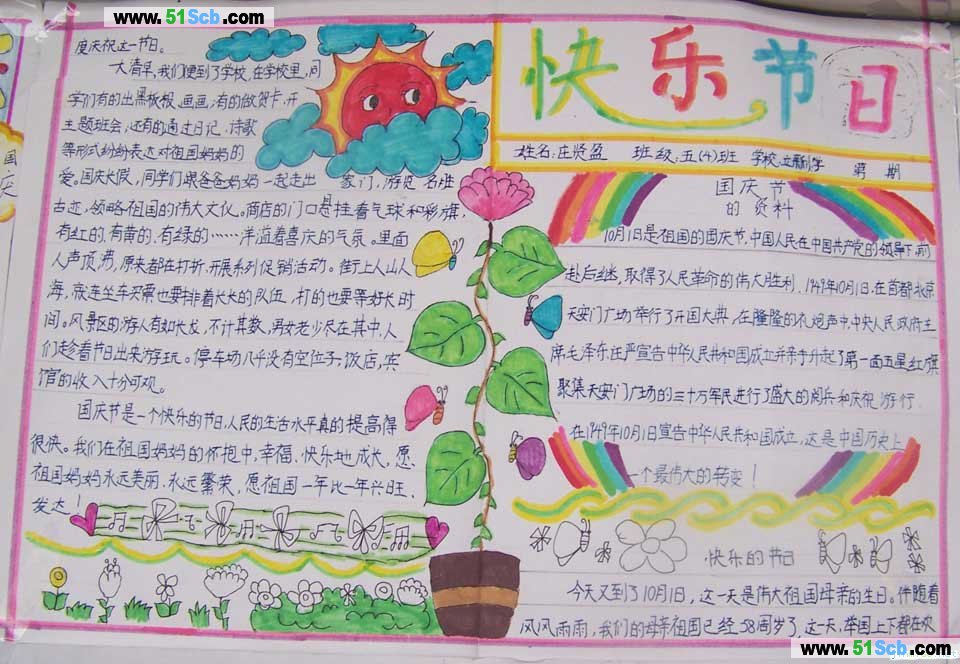 www.51Scb.com
www.51Scb.com
快乐节日
姓名:庄贤盈 班级:五(4)班 学校: 第 期
国庆节
的资料
10月1日是祖国的国庆节,中国人民在中国共产党的领导下,前
赴后继,取得了人民革命的伟大胜利。1949年10月1日,在首都北京
天安门广场举行了开国大典,在隆隆的礼炮声中,中央人民政府主
席毛泽东庄严宣告中华人民共和国成立并亲手升起了第一面五星红旗
聚集天安门广场的三十万军民进行了盛大的阅兵和庆祝游行.
在1949年10月1日宣告中华人民共和国成立,这是中国历史上
一个最伟大的转变!
快乐的节日
今天又到了10月1日,这一天是伟大祖国母亲的生日。伴随着
风风雨雨,我们的母亲祖国已经58周岁了,这一天,举国上下都在欢
度庆祝这一节日。
大清早,我们便到了学校,在学校里,同
学们有的出黑板报、画画,有的做贺卡,开
主题班会,还有的通过日记、诗歌
等形式纷纷表达对祖国妈妈的
爱。国庆长假,同学们跟爸爸妈妈一起走出 家门,游览名胜
古迹,领略祖国的伟大文化。商店的门口悬挂着气球和彩旗,
有红的,有黄的,有绿的……洋溢着喜庆的气氛。里面
人声顶沸,原来都在打折,开展系列促销活动。街上人山人
海,就连坐车买票也要排着长长的队伍,打的也要等好长时
间。风景区的游人有如长龙,不计其数,男女老少尽在其中,人
们趁着节日出来游玩。停车场几乎没有空位子,饭店,宾
馆的收入十分可观。
国庆节是一个快乐的节日,人民的生活水平真的提高得
很快。我们在祖国妈妈的怀抱中,幸福、快乐地成长,愿
祖国妈妈永远美丽、永远繁荣,愿祖国一年比一年兴旺、
发达!
国
庆
www.51Scb.com